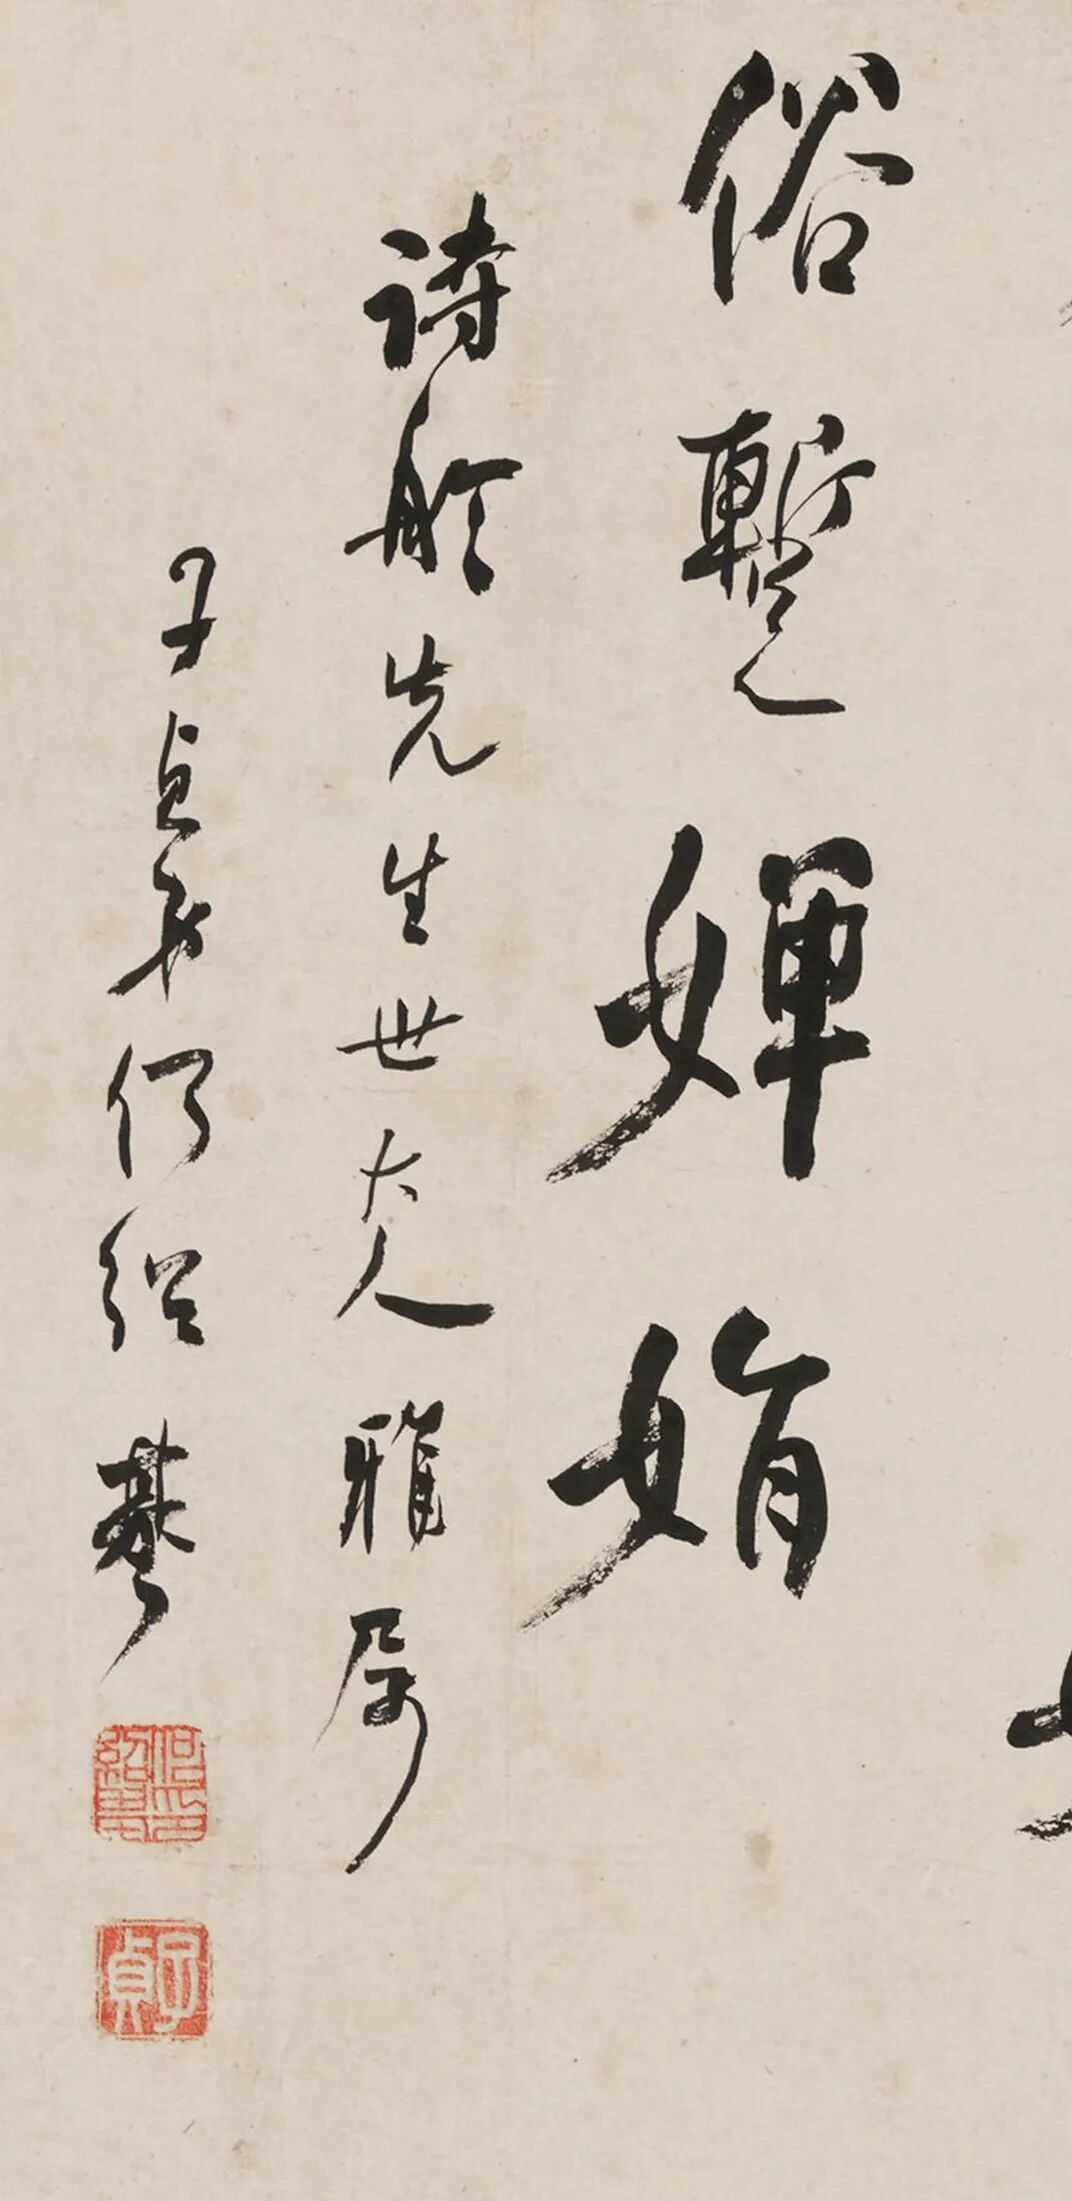 俗暫嬋娟
詩舲先生世大人雅屬
子貞弟何紹基
何紹基印
子貞